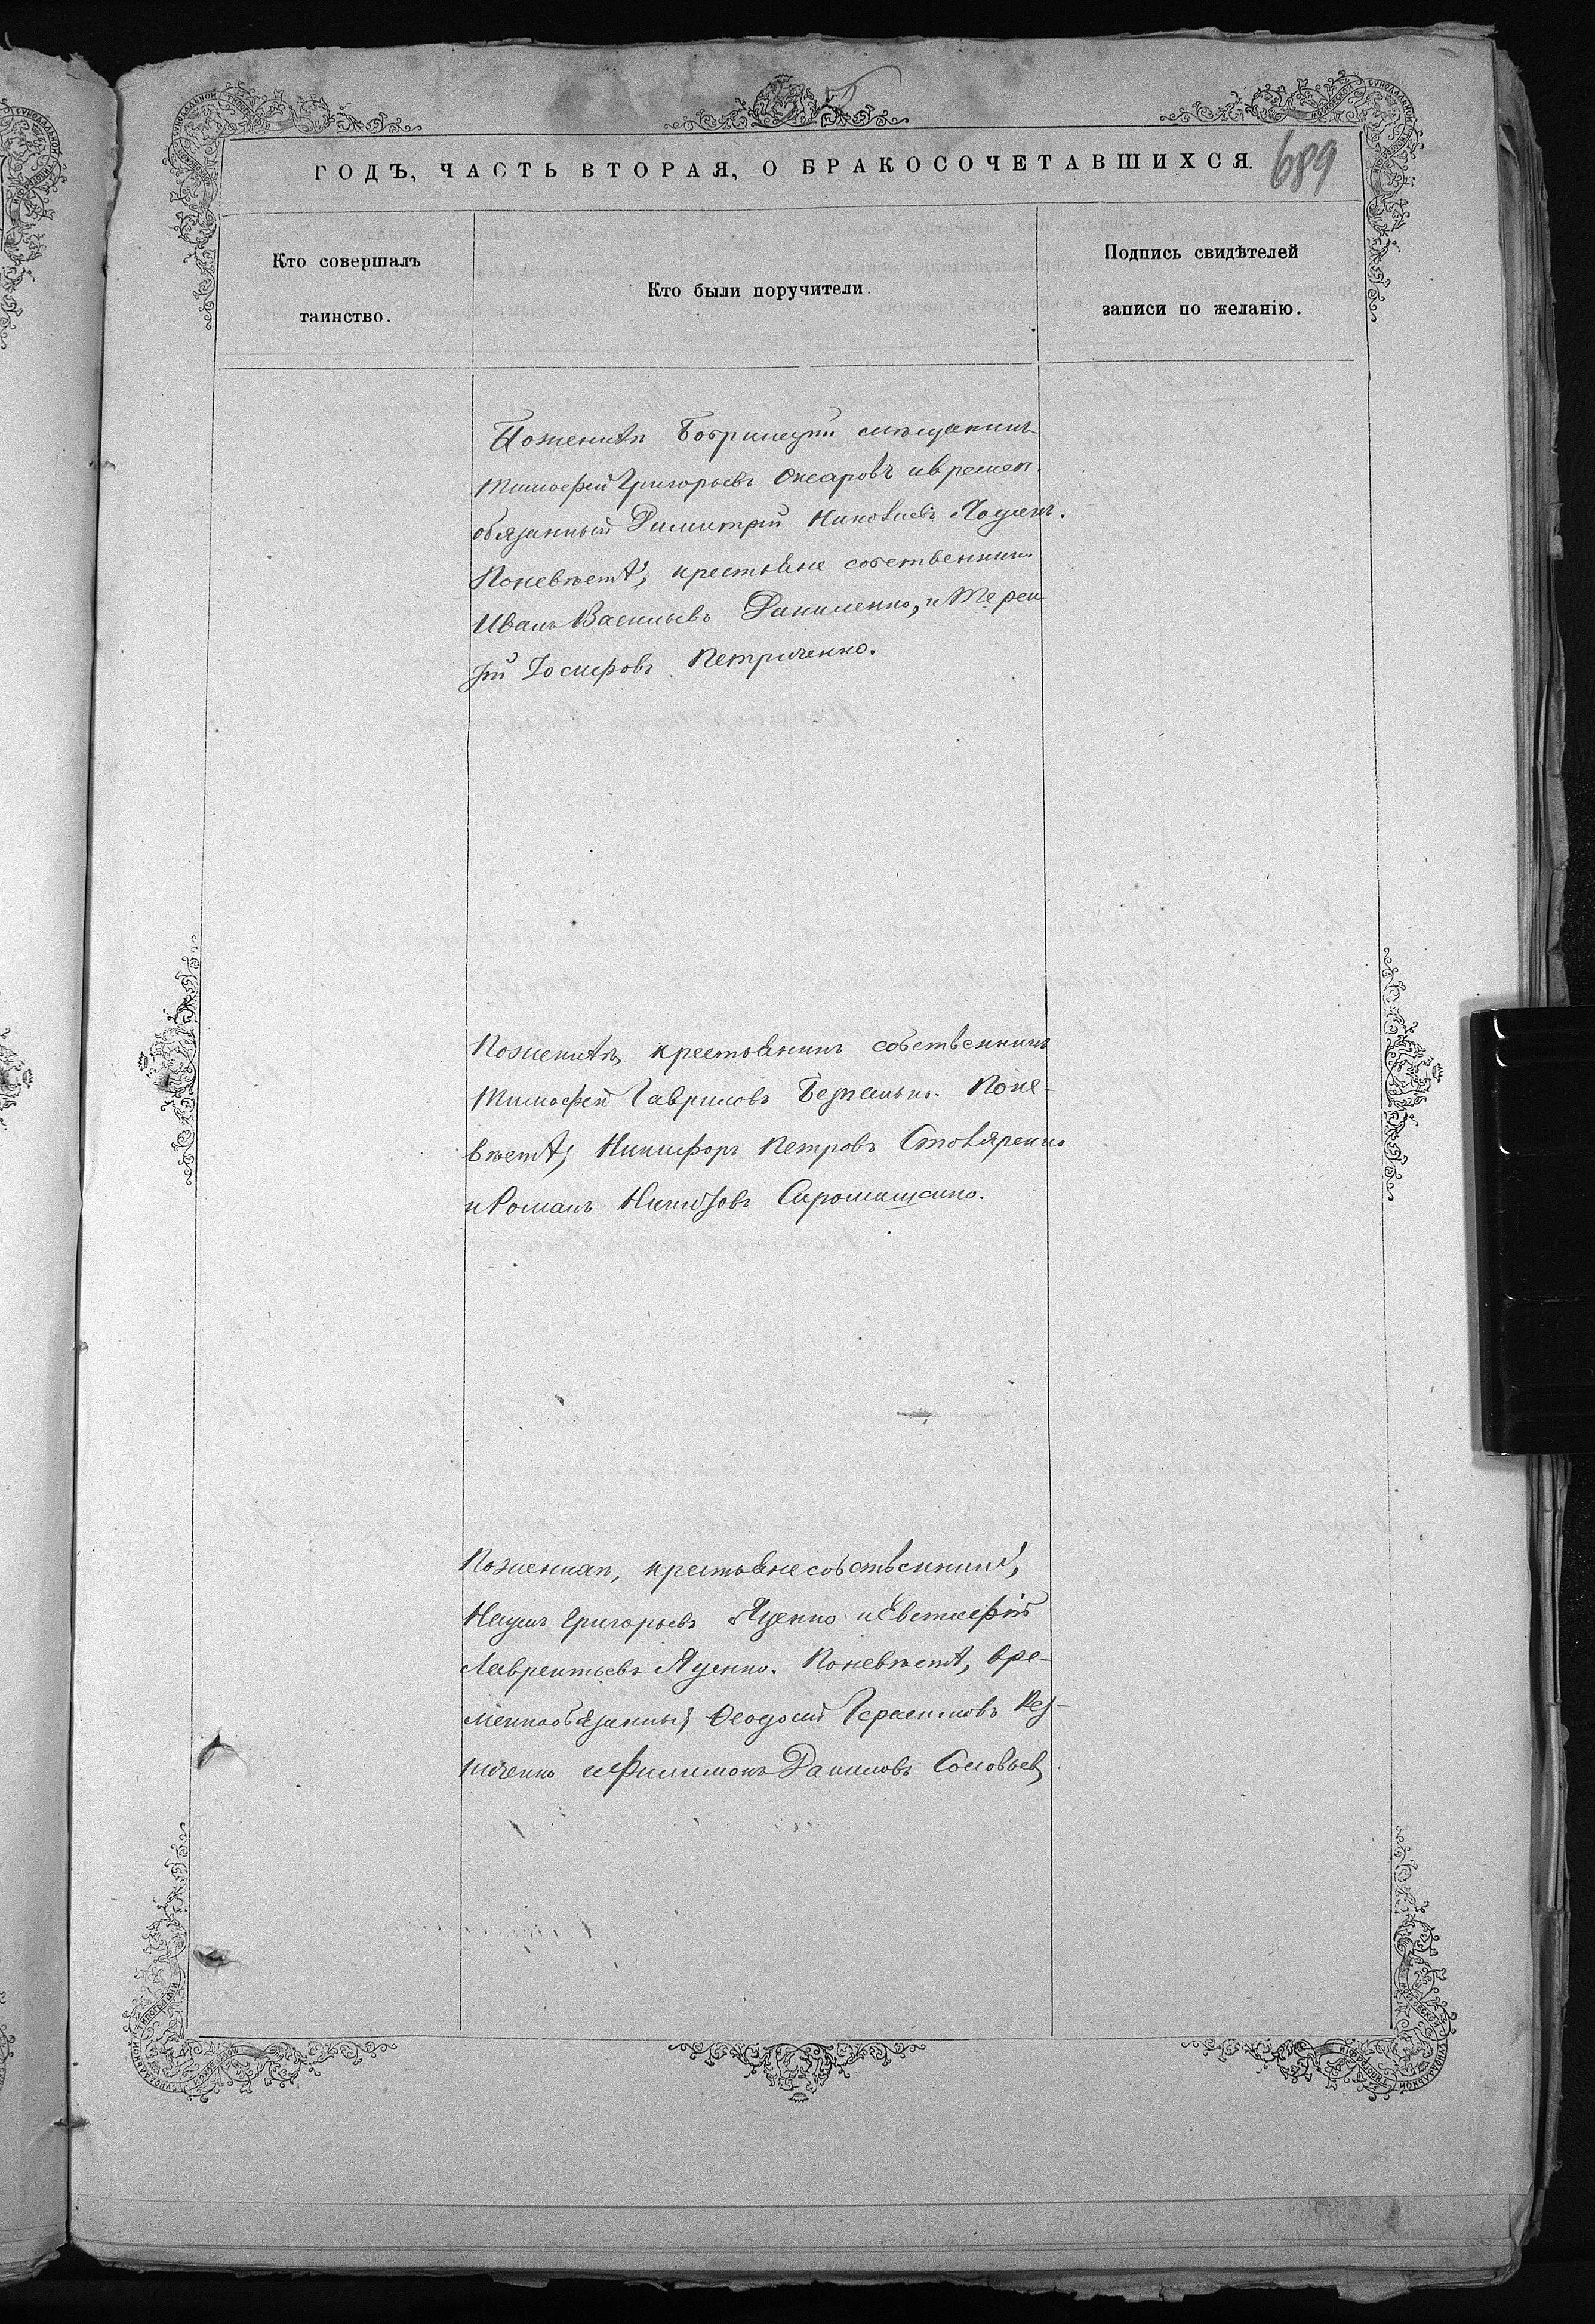 689
ГОДЪ, ЧАСТЬ ВТОРАЯ, О БРАКОСОЧЕТАВШИХСЯ.
Кто совершалъ
таинство.
Кто были поручители.
Подпись свидѣтелей
записи по желанію.
Поженихѣ Бобринецкій мѣщанинъ
Тимофей Григорьевъ Овсаровъ и времен.
обязанный Димитрій Николаевъ
Поневѣстѣ, крестьяне собственники
Иванъ Васильевъ Даниленко, и Терен
тій Іосифовъ Петриченко.
Поженихѣ, крестьянинъ собственникъ
Тимофей Гавриловъ Безпалько. Поне-
вѣстѣ, Никифоръ Петровъ Столяренко
и Романъ
Поженихѣ, крестьяне собственники,
Наумъ Григорьевъ Яценко и Евстафій
Лаврентьевъ Яценко. Поневѣстѣ, вре-
меннообязанный Ѳеодосій Герасимовъ Рез-
ниченко и Филимонъ Даниловъ Соловьев